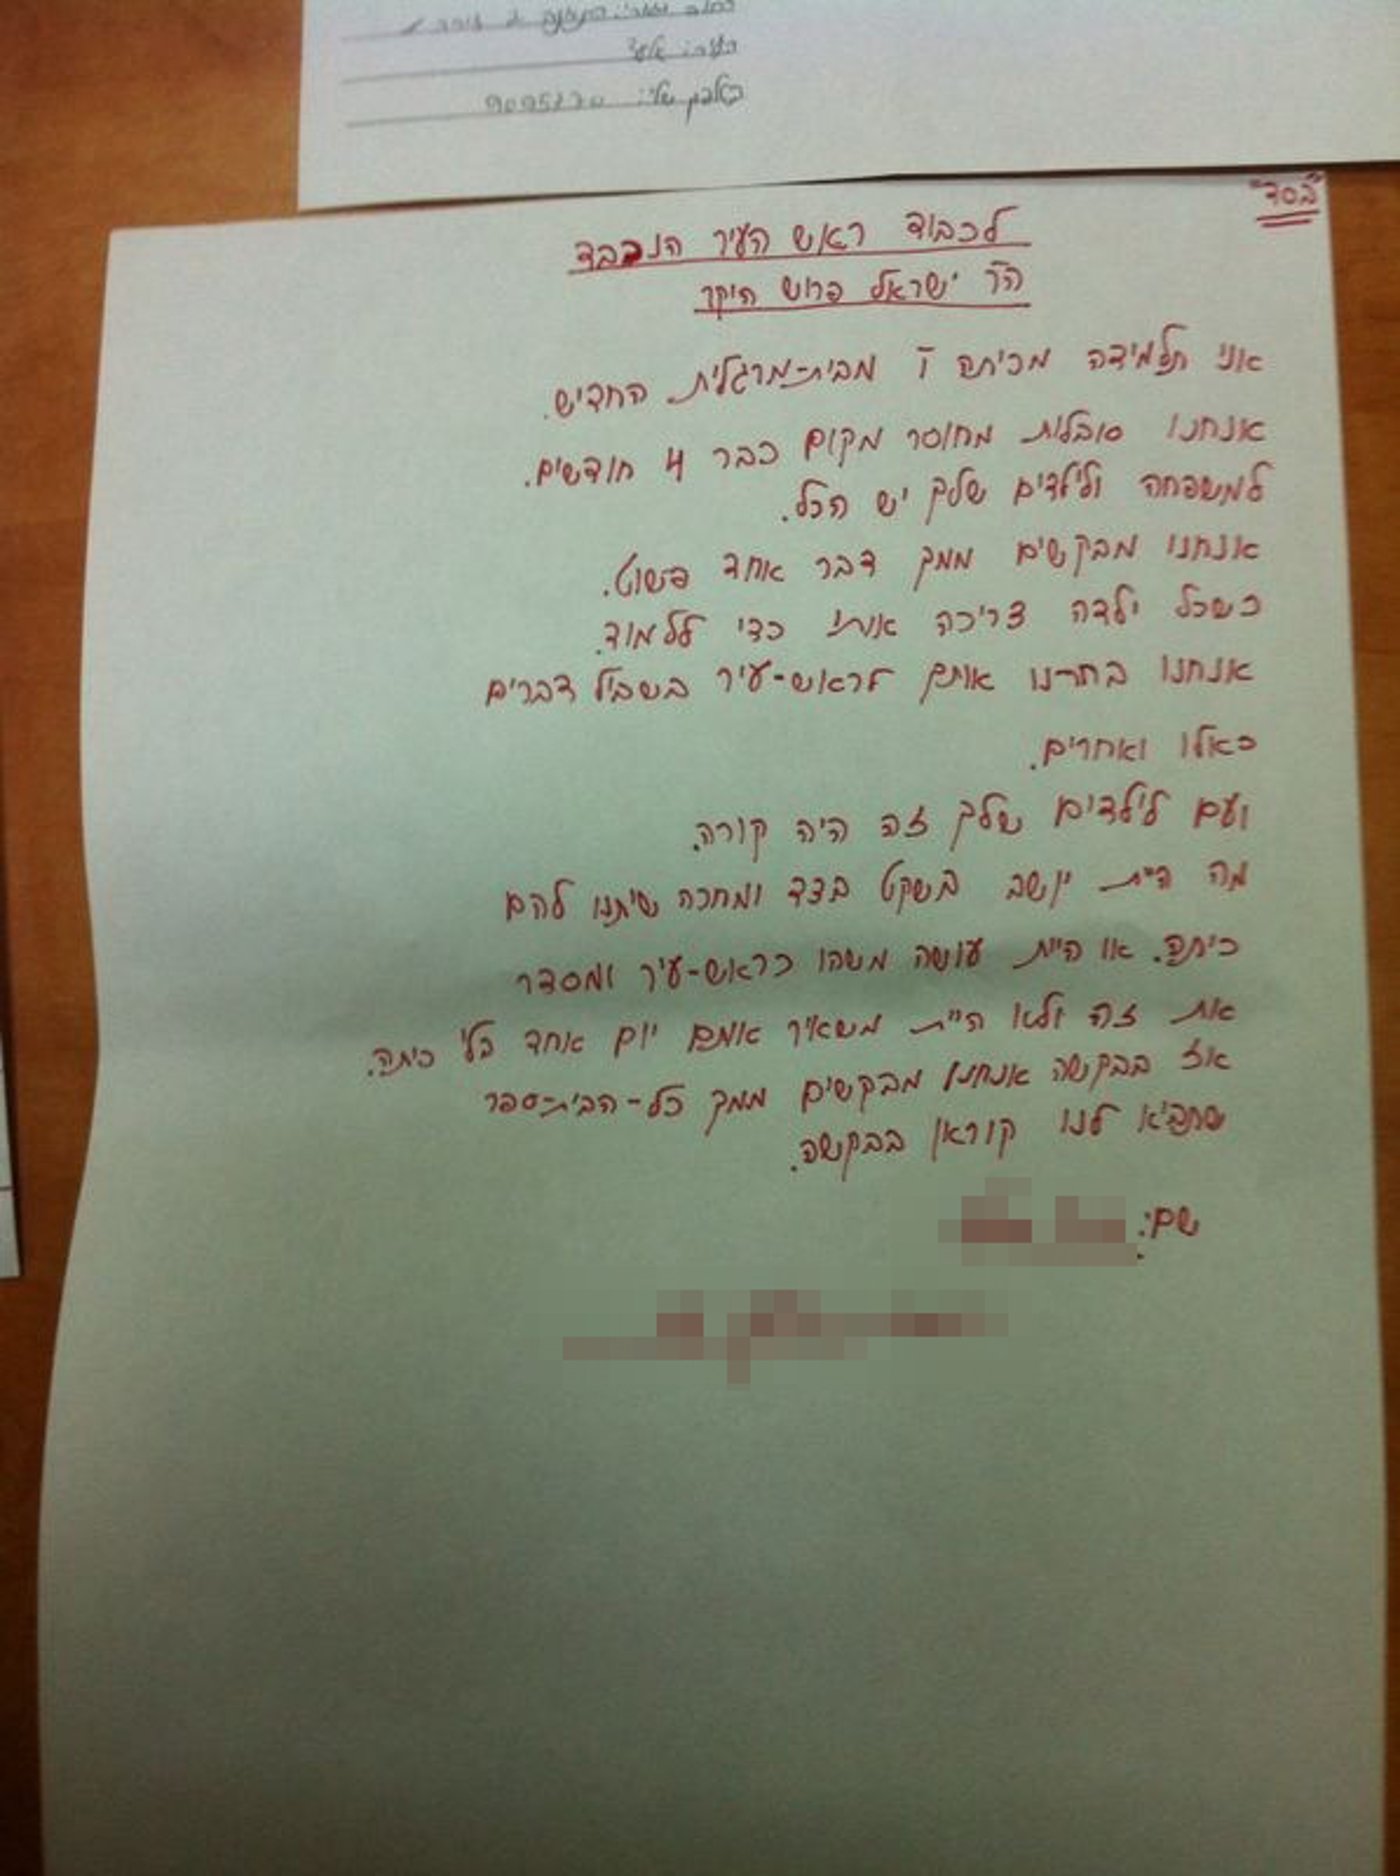 העיר: אלעד
בס"ד
לכבוד ראש העיר הנכבד
הר' ישראל פרוש היקר
אני תלמידה מכיתה ו' מבית-מרגלית החדיש.
אנחנו סובלות מחוסר מקום כבר 4 חודשים.
למשפחה ולילדים שלך יש הכל.
אנחנו מבקשים ממך דבר אחד פשוט.
כשכל ילדה צריכה אותו כדי ללמוד.
אנחנו בחרנו אותך לראש-עיר בשביל דברים
כאלו ואחרים.
ועם לילדים שלך זה היה קורה.
מה היית יושב בשקט בצד ומחכה שיתנו להם
כיתה. או היית עושה משהו כראש-עיר ומסדר
את זה ולא היית משאיר אותם יום אחד בלי כיתה.
אז בבקשה אנחנו מבקשים ממך כל-הבית-ספר
שתביא לנו קוראן בבקשה.
שם: